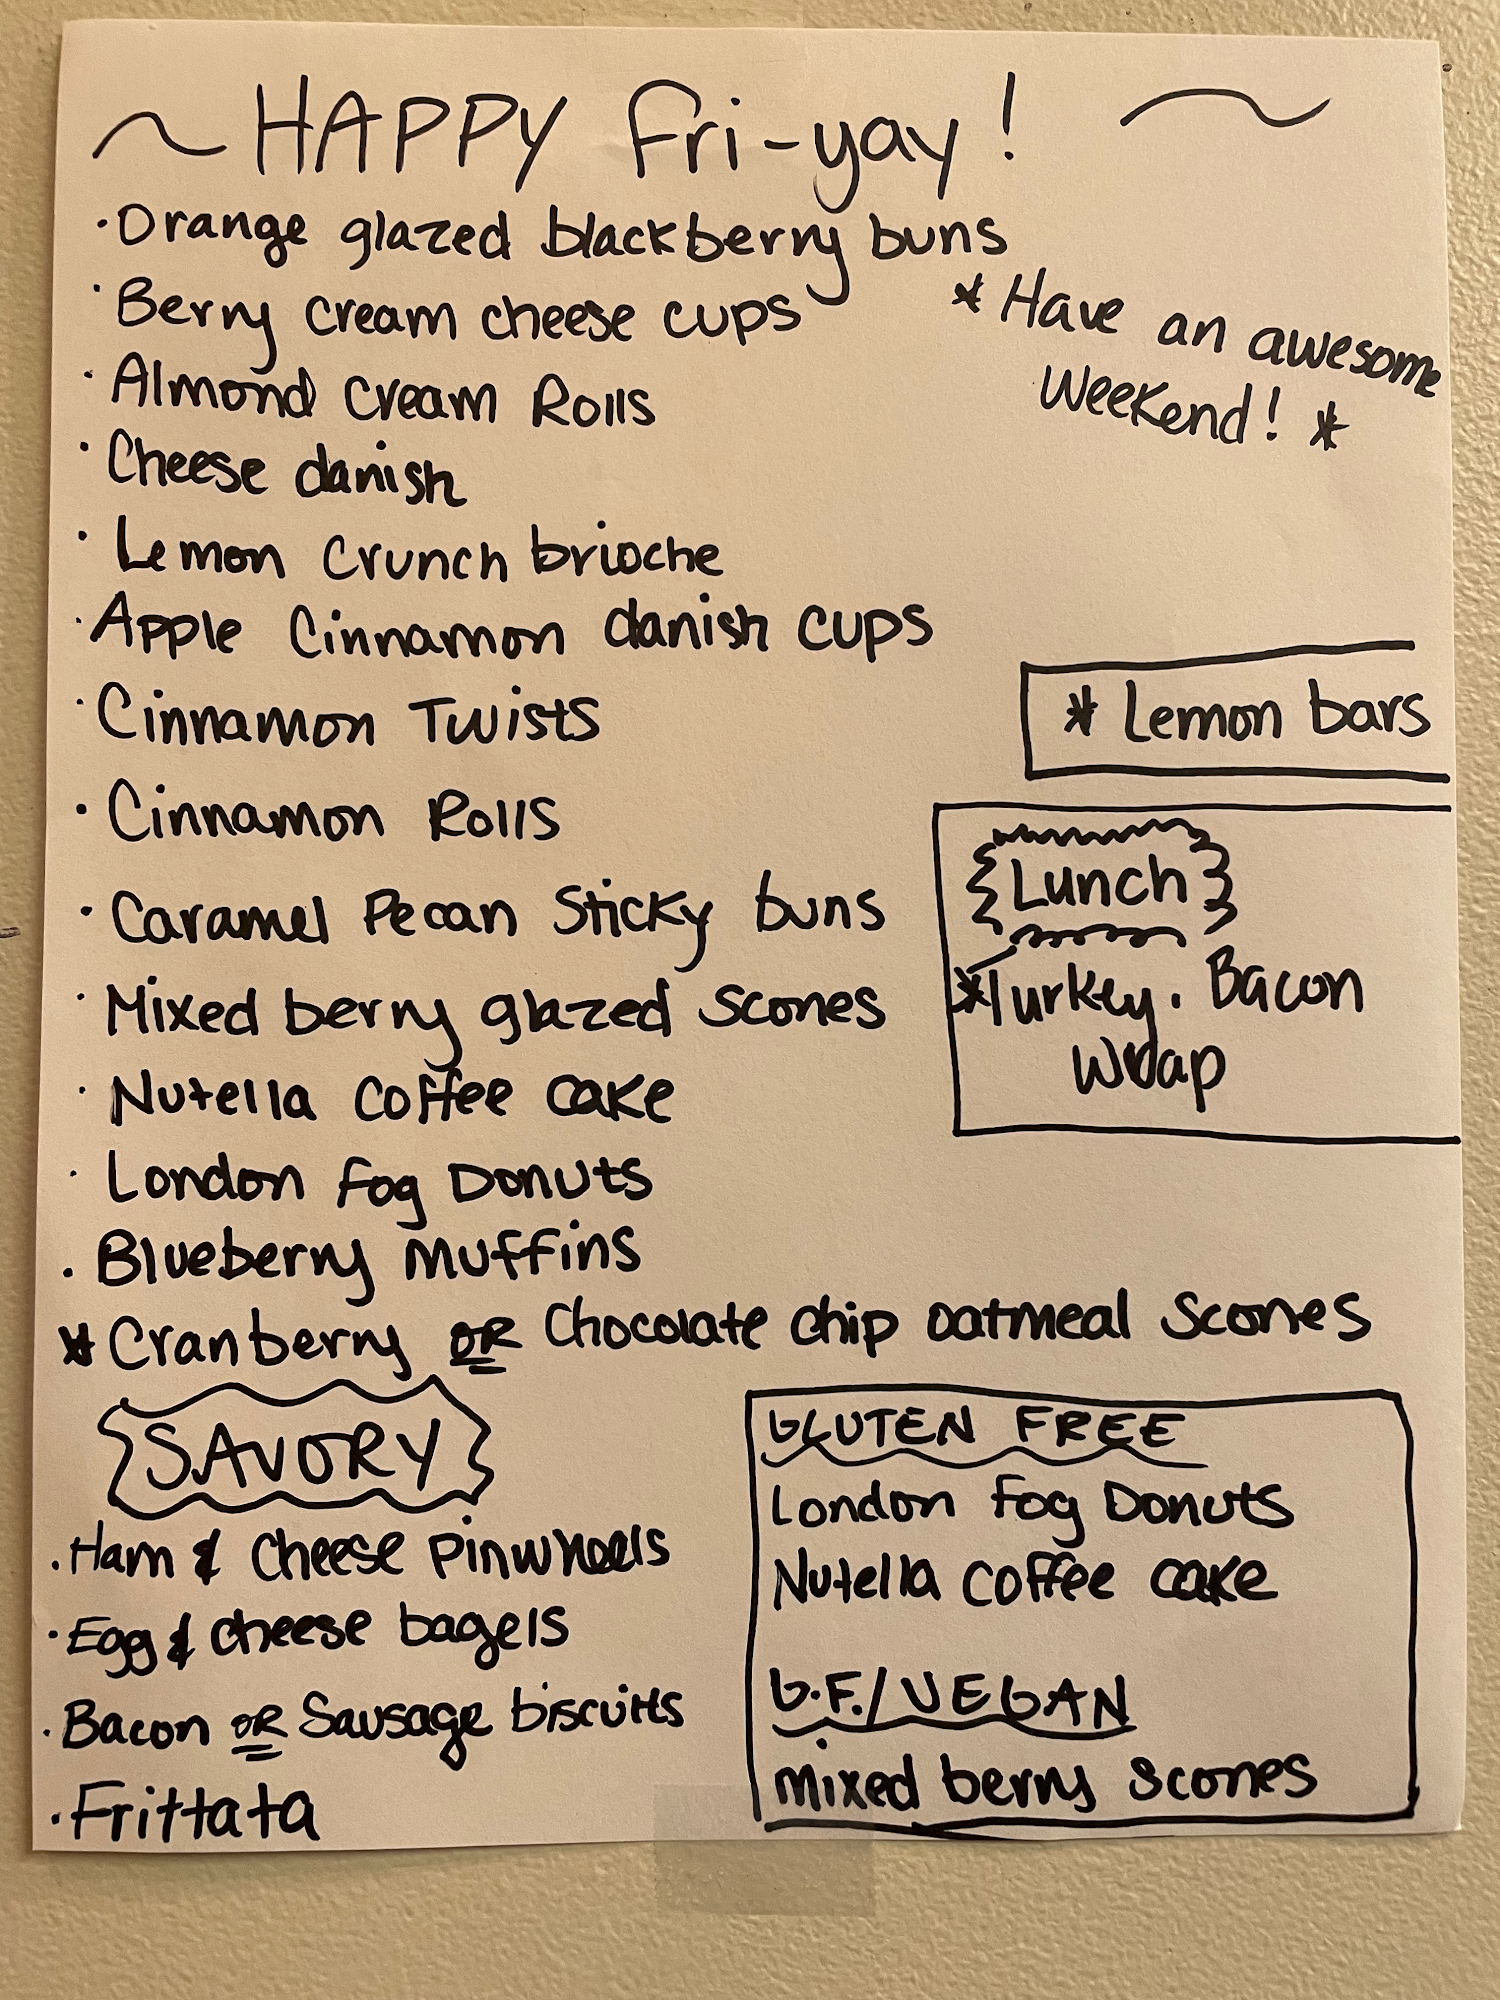 ~ HAPPY Fri-yay! ~
· Orange glazed blackberry buns
· Berry cream cheese cups
* Have an awesome
Weekend! *
· Almond Cream Rolls
· Cheese danish
· Lemon Crunch brioche
· Apple Cinnamon danish cups
· Cinnamon Twists
* Lemon bars
· Cinnamon Rolls
· Caramel Pecan Sticky buns
· Mixed berry glazed Scones
· Nutella Coffee Cake
· London Fog Donuts
· Blueberry Muffins
Lunch
* Turkey. Bacon
Wrap
* Cranberry OR Chocolate chip oatmeal Scones
SAVORY
· Ham & Cheese Pinwheels
· Egg & Cheese bagels
· Bacon OR Sausage biscuits
· Frittata
GLUTEN FREE
London Fog Donuts
Nutella Coffee Cake
G.F./VEGAN
mixed berry Scones